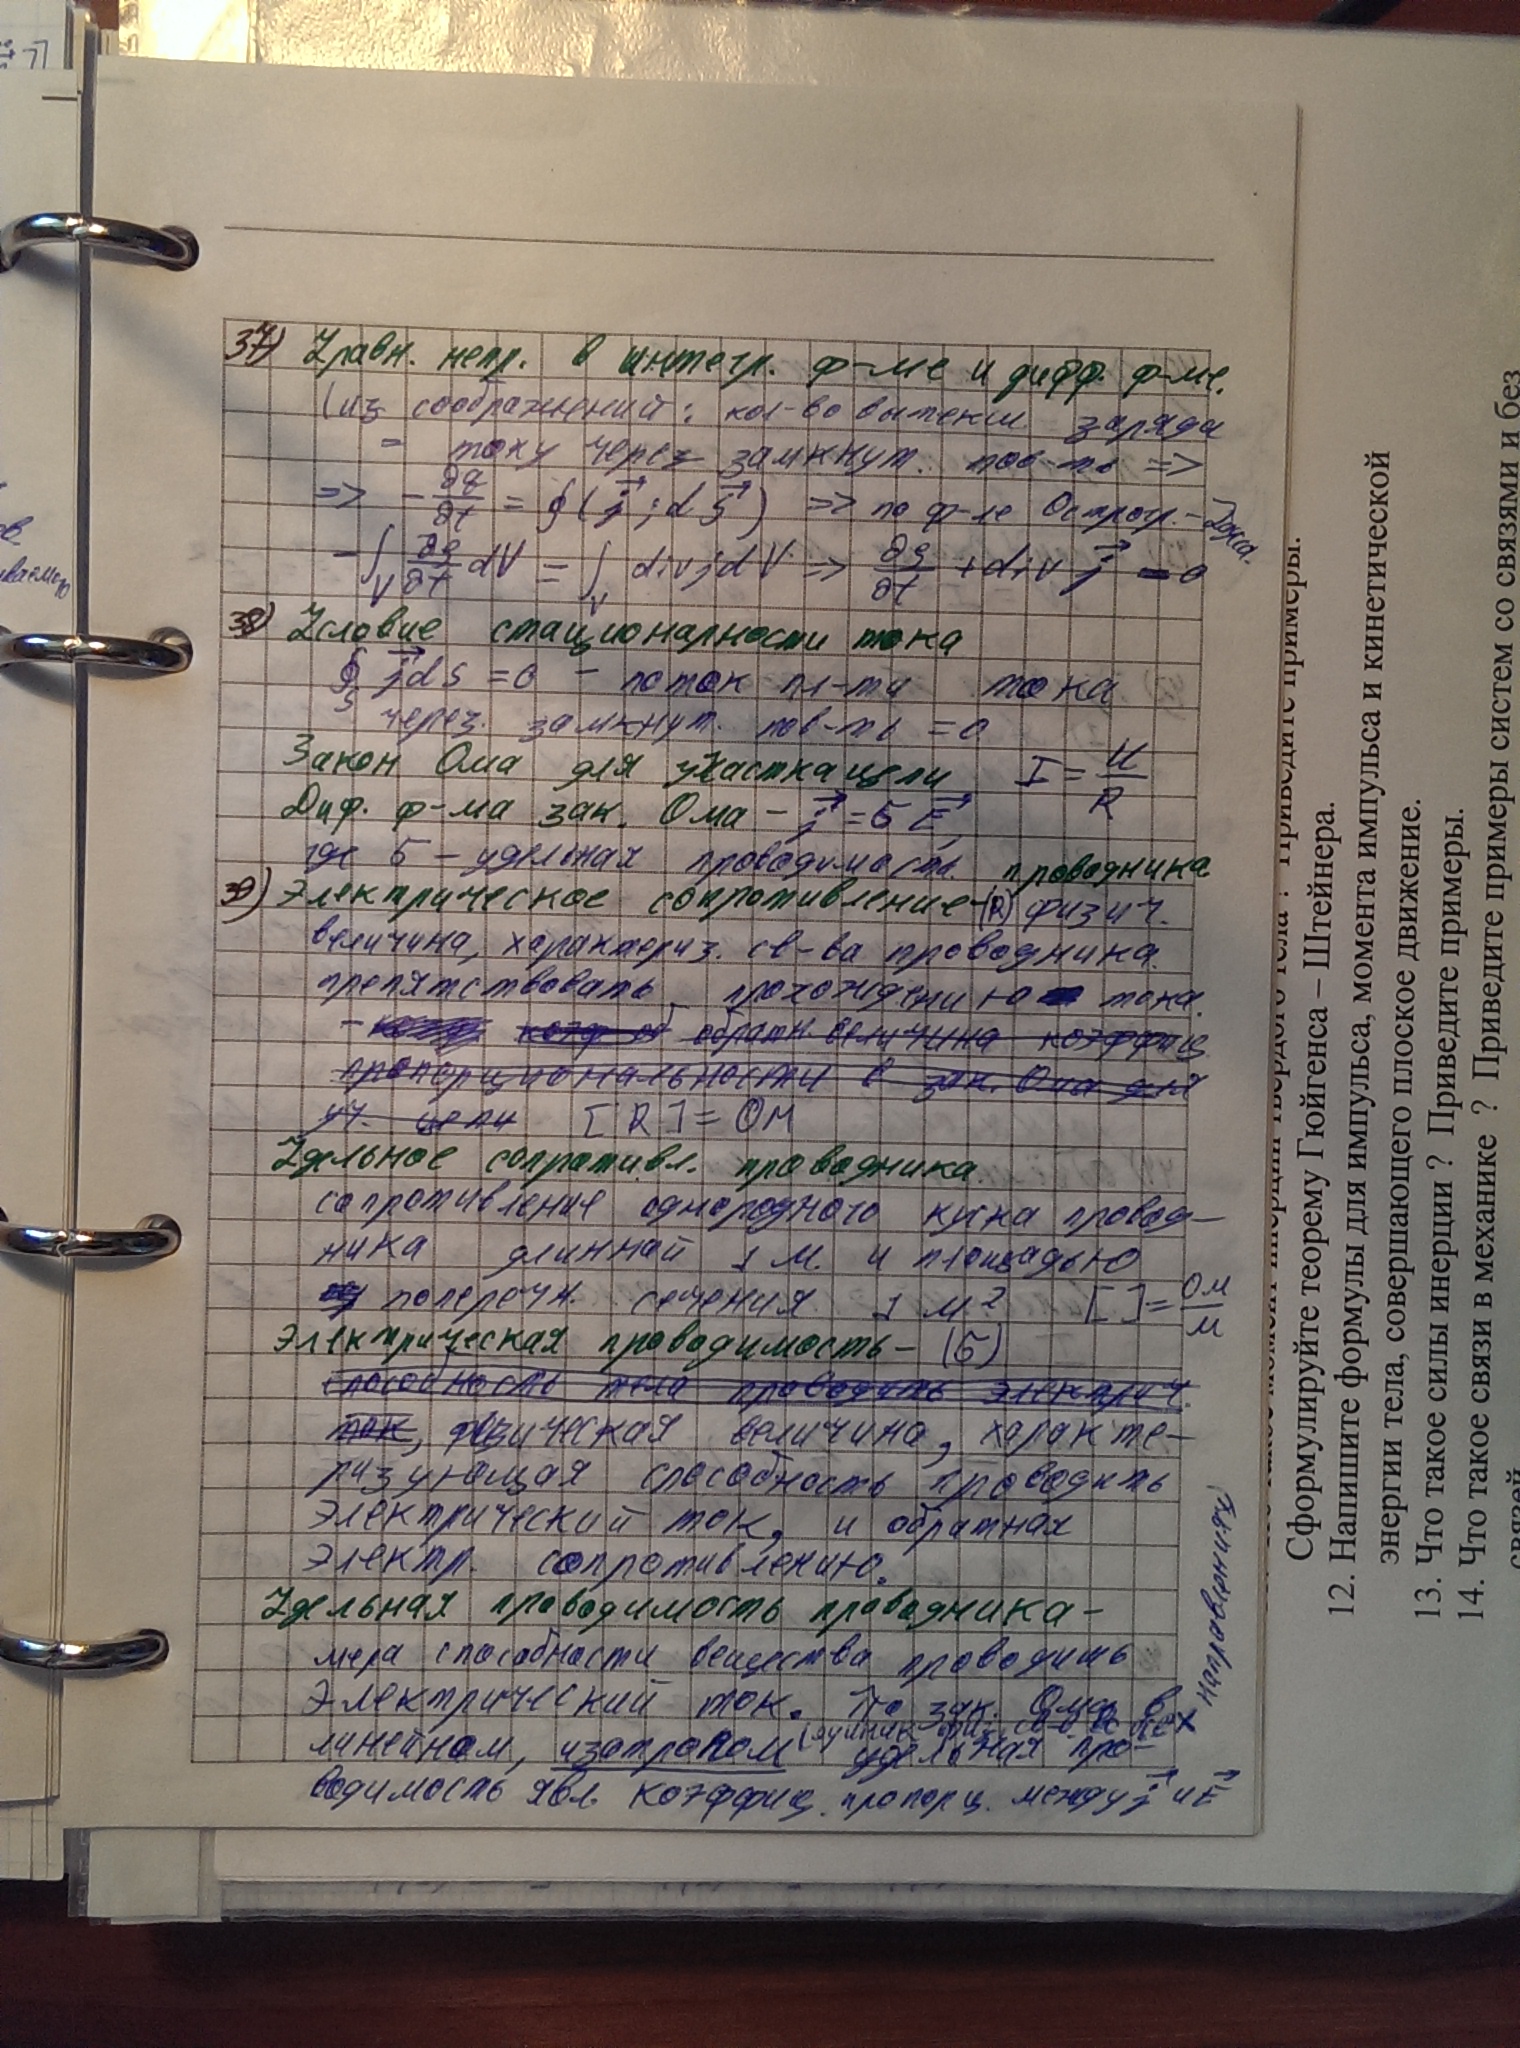 37) Уравн. непр. в интегр. ф-ме и дифф. ф-ме.
(из соображений: кол-во вытекш. заряда
= току через замкнут. пов-ть =>
=> -∂q/∂t = ∮(j⃗; dS⃗) => по ф-ле Острогр.-
-∫_V ∂ρ/∂t dV = ∫_V div j dV => ∂ρ/∂t + div j⃗ = 0
38) Условие стационарности тока
∮_S j⃗dS = 0 - поток пл-ти тока
через замкнут. пов-ть = 0
Закон Ома для участка цепи I = U/R
Диф. ф-ма зак. Ома - j⃗ = σE⃗,
где σ - удельная проводимость проводника
39) Электрическое сопротивление - (R) физич.
величина, характериз. св-ва проводника
препятствовать прохождению тока.
- обратн. величина коэффиц
пропорциональности в зак. Ома для
уч. цепи [R] = Ом
Удельное сопротивл. проводника
сопротивление однородного куска провод-
ника длинной 1 м. и площадью
поперечн. сечения 1 м² [ ] = Ом/м
Электрическая проводимость - (σ)
способность тела проводить электрич.
ток, физическая величина, характе-
ризующая способность проводить
электрический ток, и обратная
электр. сопротивлению.
Удельная проводимость проводника -
мера способности вещества проводить
электрический ток. По зак. Ома в
линейном, изотропном удельная про-
водимость явл. коэффиц. пропорц. между j⃗ и E⃗
физ. св-в во всех
направлениях
Сформулируйте теорему Гюйгенса – Штейнера.
12. Напишите формулы для импульса, момента импульса и кинетической
энергии тела, совершающего плоское движение.
13. Что такое силы инерции ? Приведите примеры.
14. Что такое связи в механике ? Приведите примеры систем со связями и без
связей